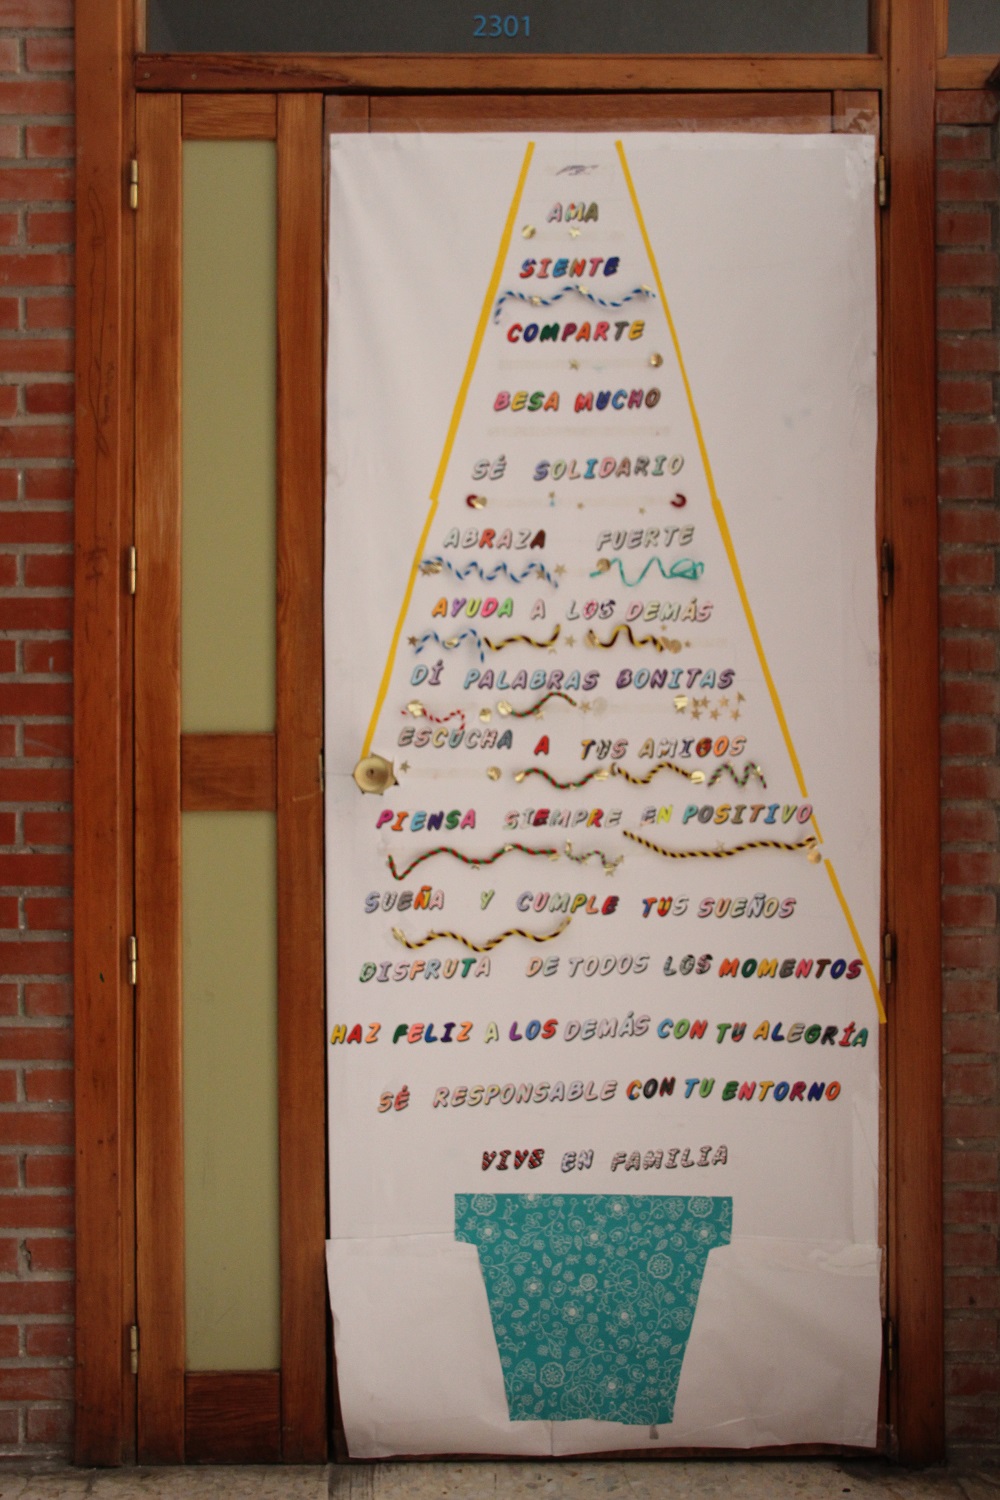 2301
AMA
SIENTE
COMPARTE
BESA MUCHO
SÉ SOLIDARIO
ABRAZA FUERTE
AYUDA A LOS DEMÁS
DÍ PALABRAS BONITAS
ESCUCHA A TUS AMIGOS
PIENSA SIEMPRE EN POSITIVO
SUEÑA Y CUMPLE TUS SUEÑOS
DISFRUTA DE TODOS LOS MOMENTOS
HAZ FELIZ A LOS DEMÁS CON TU ALEGRÍA
SÉ RESPONSABLE CON TU ENTORNO
VIVE EN FAMILIA